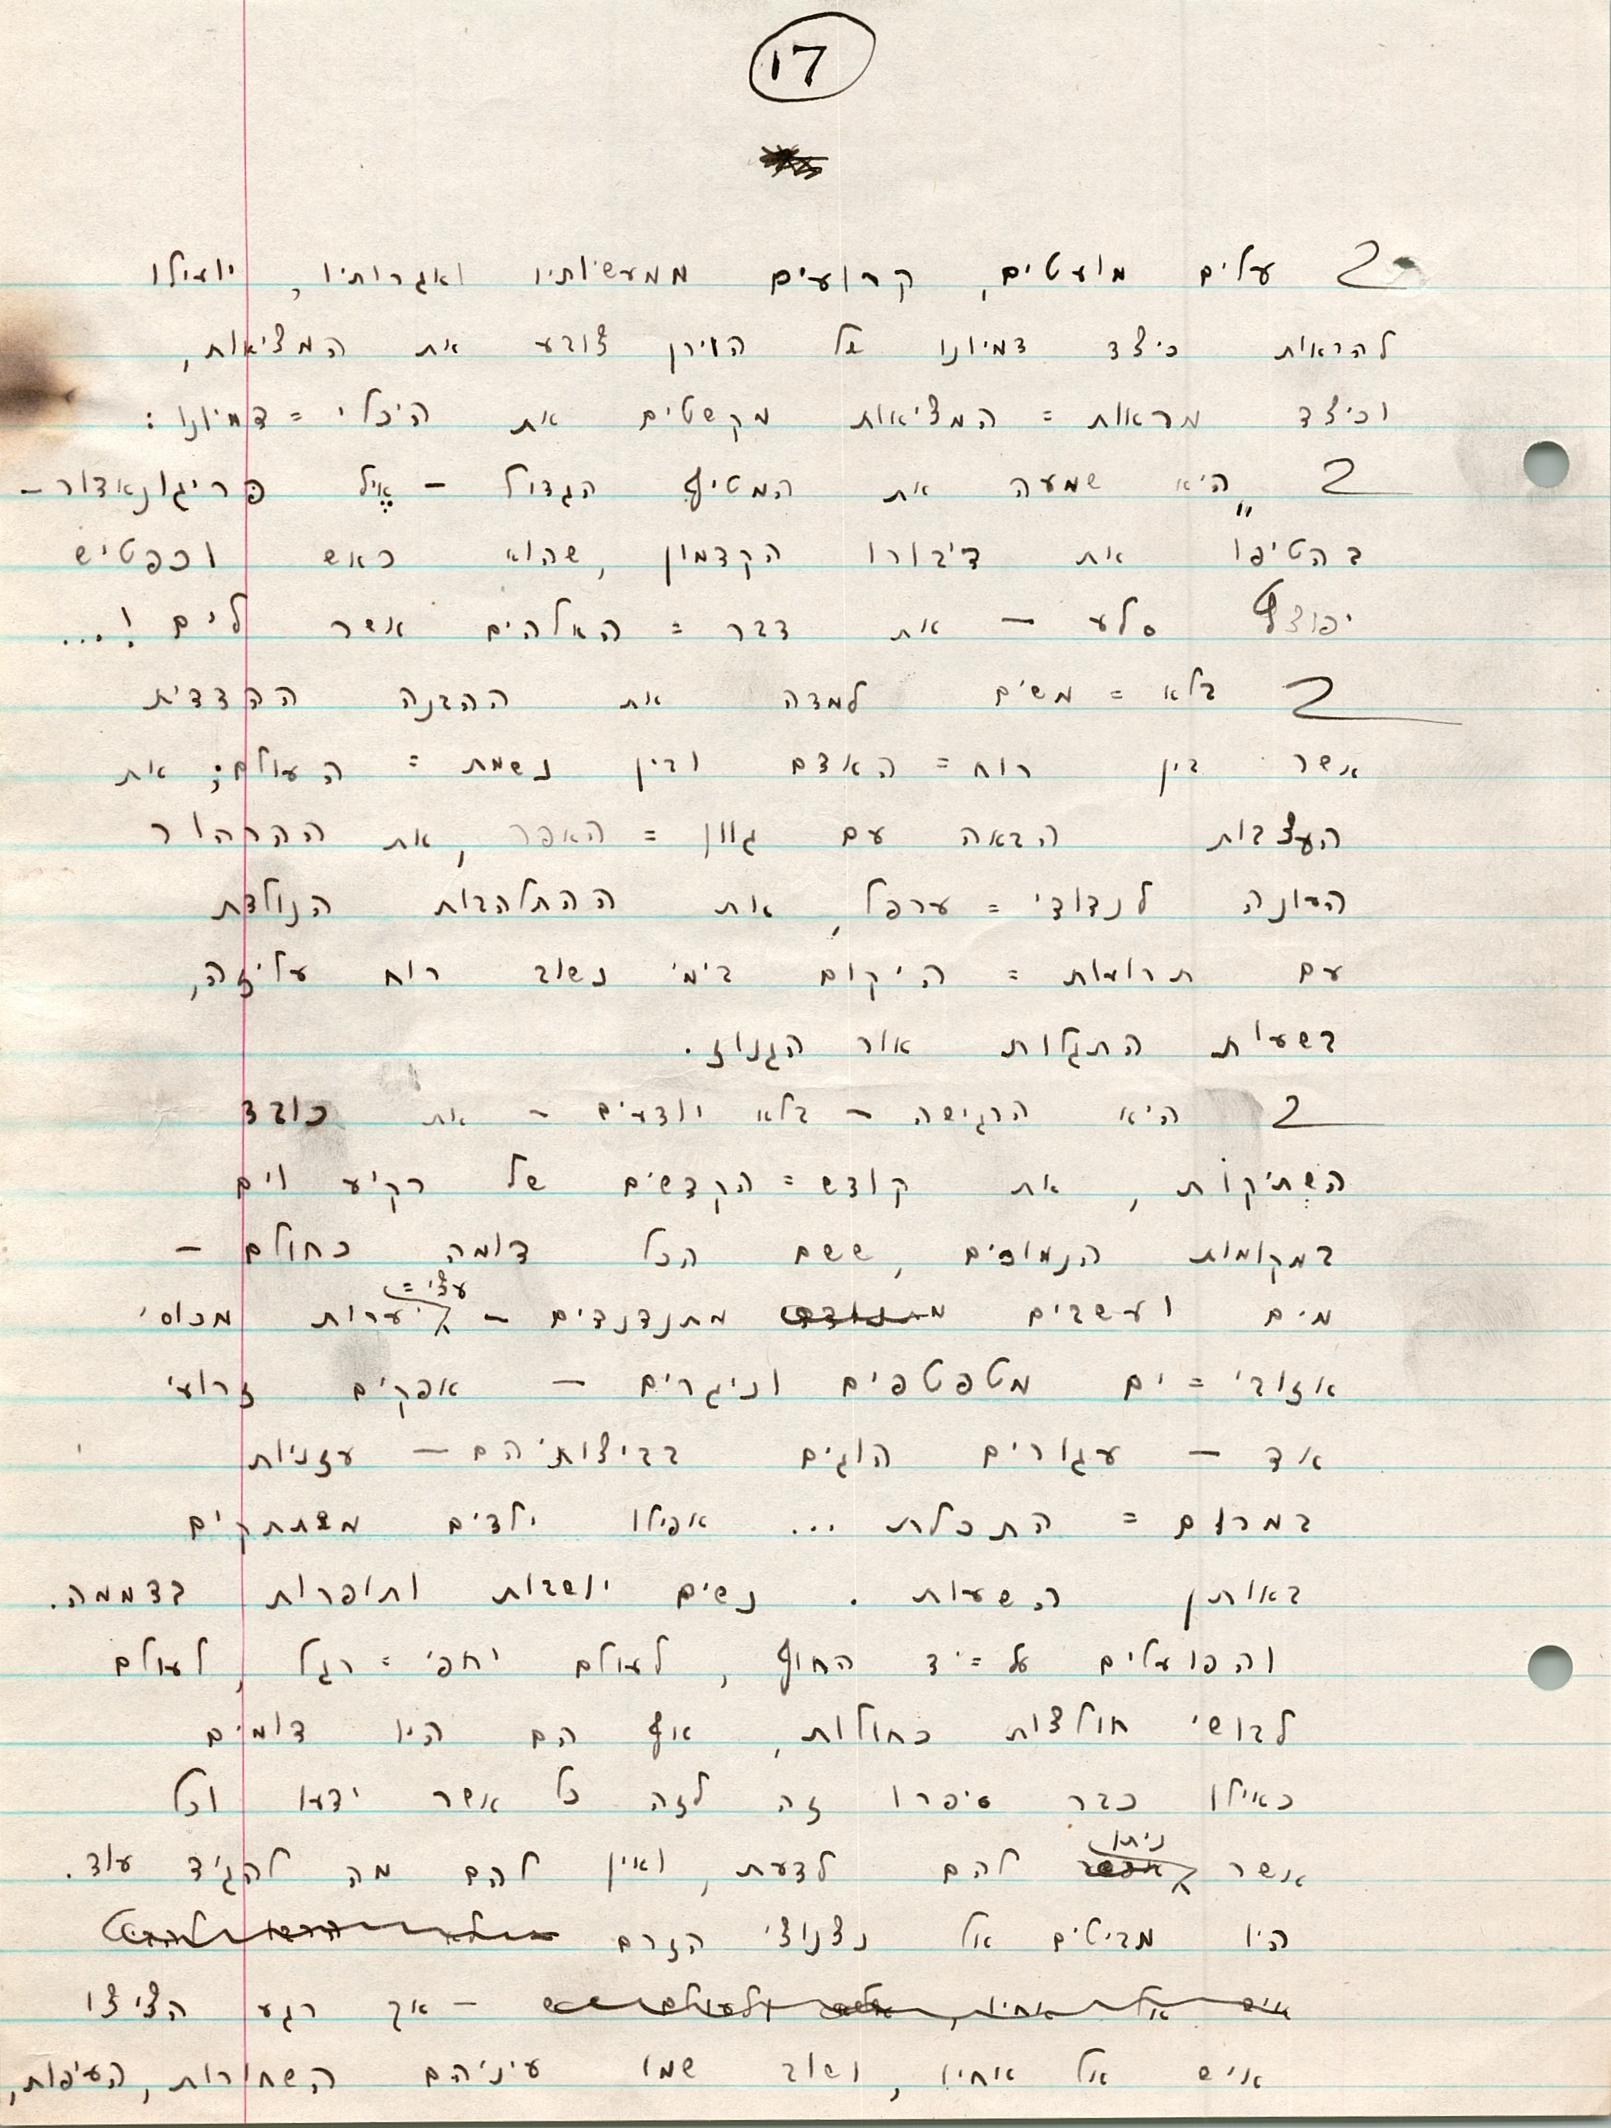 17
עלים מועטים, קרועים ממעשיותיו ואגרותיו, יועילו
להראות כיצד דמיונו של הוירן צובע את המציאות,
וכיצד מראות = המציאות מקשטים את היכלי = דמיונו:
"היא שמעה את המטיף הגדול – אֶיל פריגונאדור –
בהטיפו את דיבורו הקדמון, שהוא כאש וכפטיש
יפוצץ סלע – את דבר = האלהים אשר לים!...
בלא = משים למדה את ההבנה ההדדית
אשר בין רוח = האדם ובין נשמת = העולם; את
העצבות הבאה עם גוון = האפר, את ההרהור
העונה לנדודי = ערפל, את ההתלהבות הנולדת
עם תרועות = היקום בימי נשוב רוח עליזה,
בשעות התגלות אור הגנוז.
היא הרגישה – בלא יודעים – את כובד
השתיקות, את קודש = הקדשים של רקיע וים
במקומות הנמוכים, ששם הכל דומה כחולם –
מים ועשבים מתנדנדים – עצי = יערות מכוסי
אזובי = ים מטפטפים וניגרים – אפקים זרועי
אד – עגורים הוגים בביצותיהם – עזניות
במרום = התכלת ... אפילו ילדים משתתקים
באותן השעות. נשים יושבות ותופרות בדממה.
והפועלים על = יד החוף, לעולם יחפי = רגל, לעולם
לבושי חולצות כחולות, אף הם היו דומים
כאילו כבר סיפרו זה לזה כל אשר ידעו וכל
אשר ניתן להם לדעת, ואין להם מה להגיד עוד.
היו מביטים אל נצנוצי הזרם
איש אל אחיו, – אך רגע הציצו
איש אל אחיו, ושוב שמו עיניהם השחורות, העיפות,